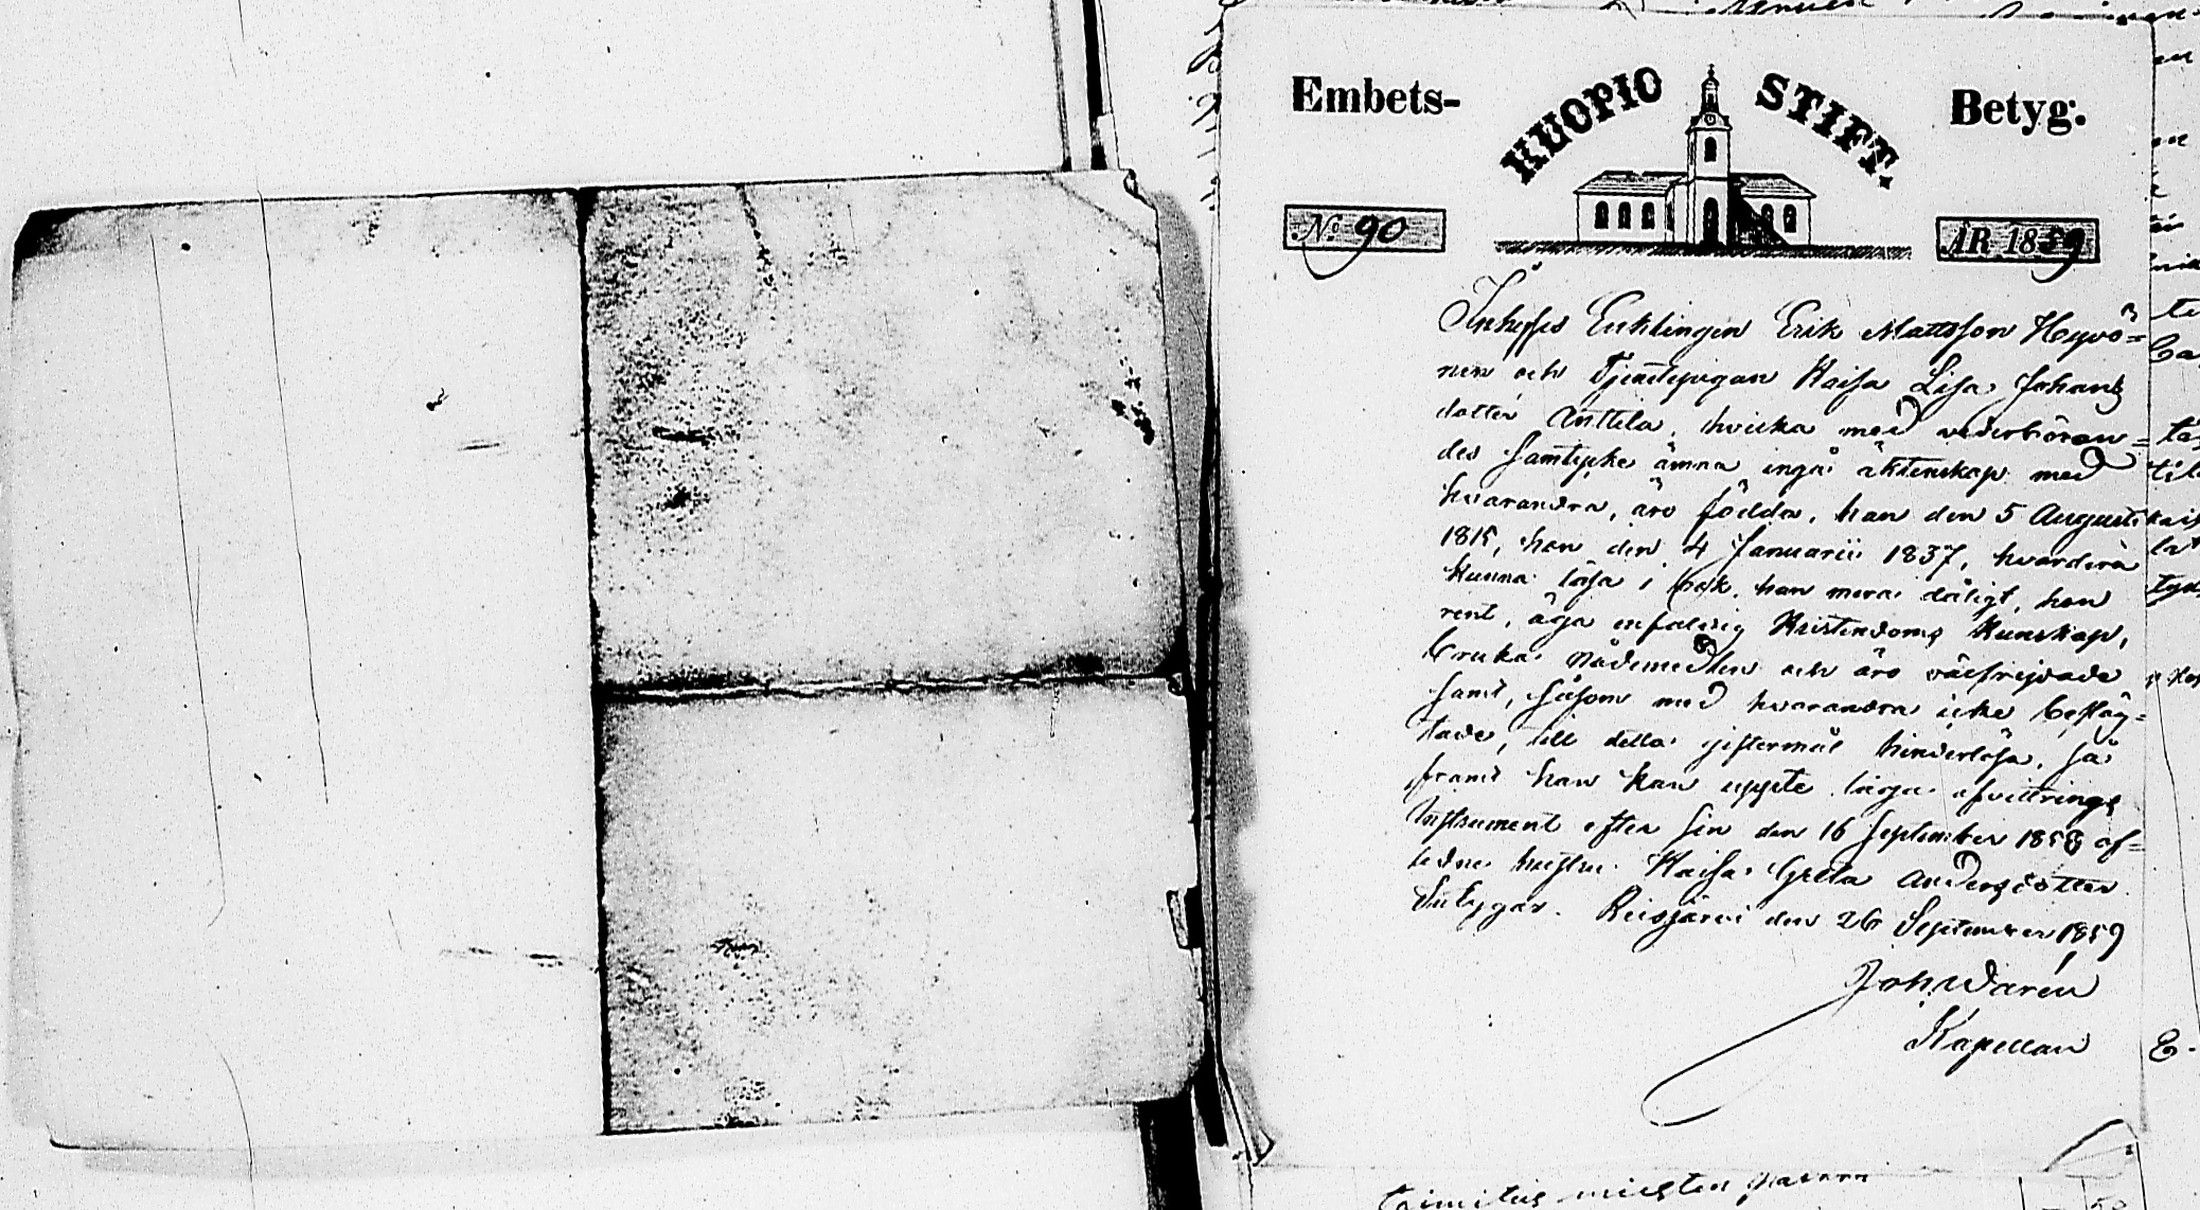 Embets- KUOPIO STIFT. Betyg.
No 90 ÅR 1859
Inhyses Enklingen Erik Mattsson Hyvö=
nen och Tjenstepigan Kaisa Lisa Johans
dotter Anttila, hvilka med vederböran=
des samtycke ämna ingå äktenskap med
hvarandra, äro födda, han den 5 Augusti
1815, hon den 4 Januarii 1837, hvardera
kunna läsa i bok, han mera dåligt, hon
rent, äga enfaldig Kristendoms Kunskap,
bruka nådemedlen och äro välfrejdade
samt, såsom med hvarandra icke besläg=
tade, till detta giftermål hinderlösa, så
framt han kan uppte laga afvittrings
Instrument efter sin den 16 September 1858 af=
ledne hustru Kaisa Greta Andersdotter
Reisjärvi den 26 September 1859
Joh. Warén
Kapellan